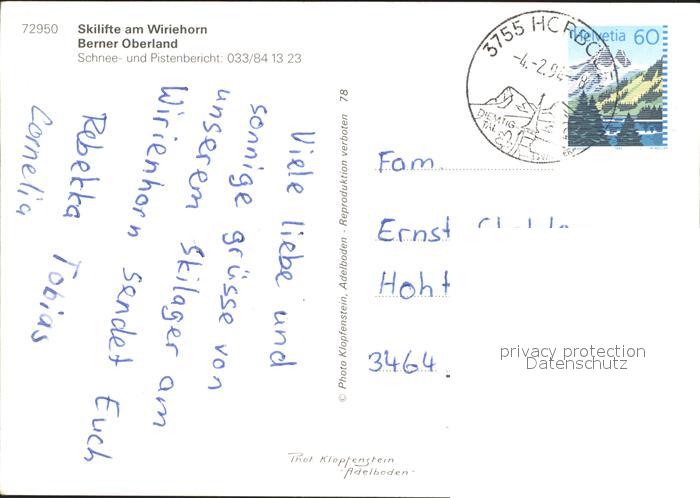 72950 Skilifte am Wiriehorn
Berner Oberland
Schnee- und Pistenbericht: 033/84 13 23
Viele liebe und
sonnige grüsse von
unserem Skilager am
Wirienhorn sendet Euch
Rebekka Tobias
Cornelia
© Photo Klopfenstein, Adelboden - Reproduktion verboten 78
Phot Klopfenstein
- Adelboden -
3755 HORBODEN
-4.-2.94-8
DIEMTIG
TAL
Helvetia 60
Fam.
Ernst
Hoht
3464
privacy protection
Datenschutz